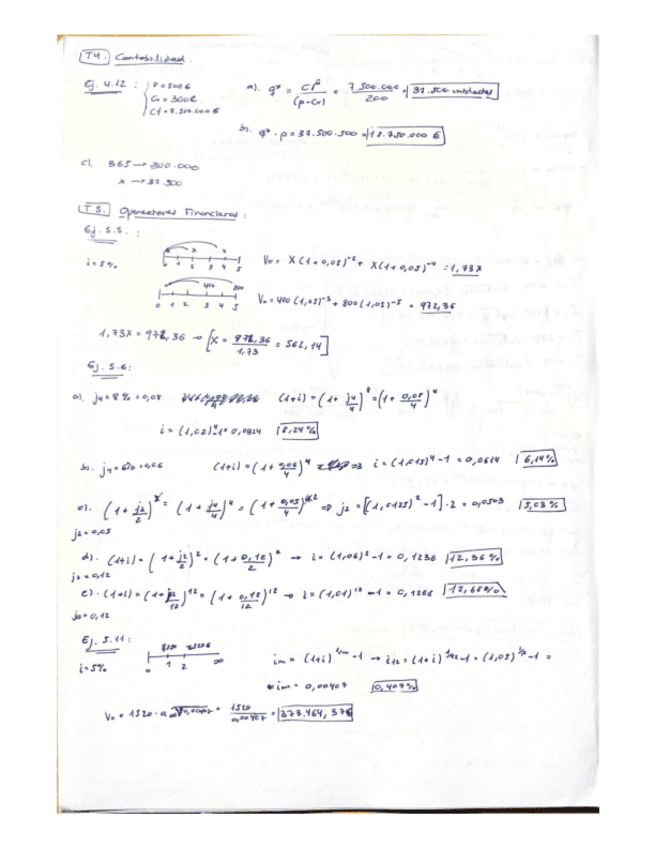 T4. Contabilidad.
Ej. 4.12 : P = 500€
Cv = 300€
Cf = 7.500.000€
a). q* = CF / (p-Cv) = 7.500.000 / 200 = 37.500 unidades
b). q* · p = 37.500·500 = 18.750.000 €
c). 365 → 300.000
x → 37.500
T5. Operaciones Financieras:
Ej. 5.5. :
i = 5%
0 1 2 3 4 5
V₀ = X(1+0,05)⁻² + X(1+0,05)⁻⁴ = 1,73X
400 800
0 1 2 3 4 5
V₀ = 400(1,05)⁻³ + 800(1,05)⁻⁵ = 972,36
1,73X = 972,36 → [X = 972,36 / 1,73 = 562,14]
Ej. 5.6:
a). j₄ = 8% = 0,08 (1+i) = (1 + j₄/4)⁴ = (1 + 0,08/4)⁴
i = (1,02)⁴-1 = 0,0824 8,24%
b). j₄ = 6% = 0,06 (1+i) = (1 + 0,06/4)⁴ ⇒ i = (1,015)⁴ - 1 = 0,0614 6,14%
c). (1 + j₂/2)² = (1 + j₄/4)⁴ = (1 + 0,05/4)² ⇒ j₂ = [(1,0125)² - 1]·2 = 0,0503 5,03%
j₂ = 0,05
d). (1+i) = (1 + j₂/2)² = (1 + 0,12/2)² → i = (1,06)² - 1 = 0,1236 12,36%
j₂ = 0,12
e). (1+i) = (1 + /12)¹² = (1 + 0,12/12)¹² → i = (1,01)¹² - 1 = 0,1268 12,68%
= 0,12
Ej. 5.11:
i = 5%
0 1 2 ∞
im = (1+i)^1/m - 1 → i₁₂ = (1+i)^1/12 - 1 = (1,05) - 1 =
im = 0,00407 0,407%
V₀ = 1520 · a = 1520 / 0,00407 = 373.464, 37€